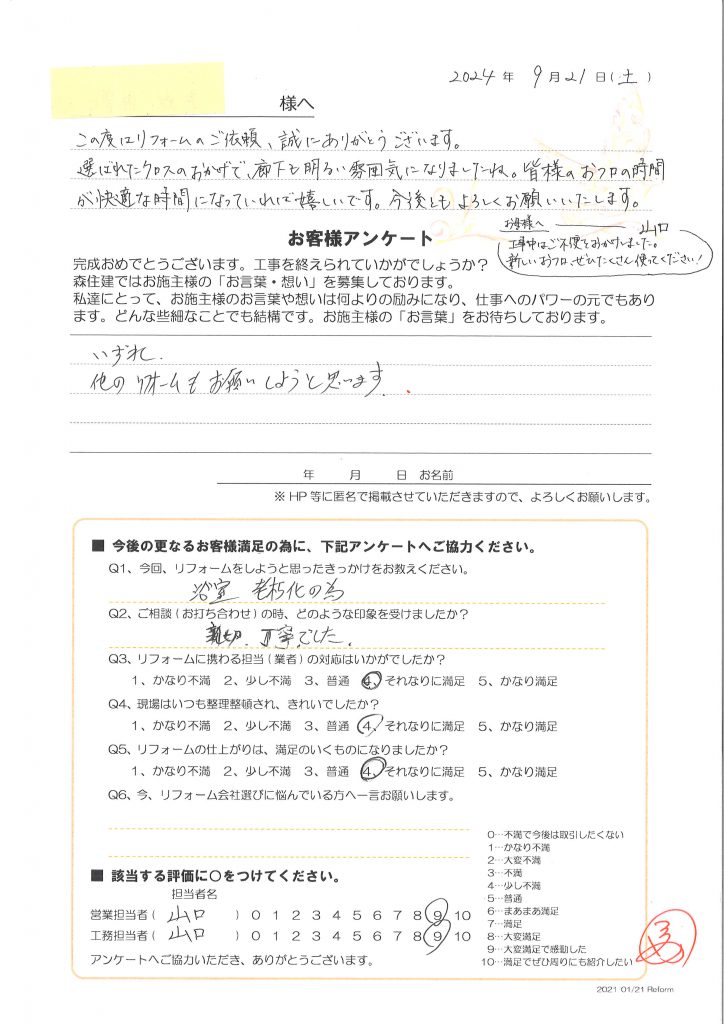 2024 年 9 月 21 日 (土)
様へ
この度はリフォームのご依頼、誠にありがとうございます。
選ばれたクロスのおかげで、廊下も明るい雰囲気になりましたね。皆様のおフロの時間
が快適な時間になっていれば嬉しいです。今後ともよろしくお願いいたします。
山口
お母様へ
工事中はご不便をおかけしました。
新しいおフロ、ぜひたくさん使ってください!
お客様アンケート
完成おめでとうございます。工事を終えられていかがでしょうか?
森住建ではお施主様の「お言葉・想い」を募集しております。
私達にとって、お施主様のお言葉や想いは何よりの励みになり、仕事へのパワーの元でもあり
ます。どんな些細なことでも結構です。お施主様の「お言葉」をお待ちしております。
いずれ、
他のリフォームもお願いしようと思います。
年 月 日 お名前
※ HP 等に匿名で掲載させていただきますので、よろしくお願いします。
■ 今後の更なるお客様満足の為に、下記アンケートへご協力ください。
Q1、今回、リフォームをしようと思ったきっかけをお教えください。
浴室 老朽化の為
Q2、ご相談(お打ち合わせ)の時、どのような印象を受けましたか?
親切、丁寧でした。
Q3、リフォームに携わる担当(業者)の対応はいかがでしたか?
1、かなり不満 2、少し不満 3、普通 4、それなりに満足 5、かなり満足
Q4、現場はいつも整理整頓され、きれいでしたか?
1、かなり不満 2、少し不満 3、普通 4、それなりに満足 5、かなり満足
Q5、リフォームの仕上がりは、満足のいくものになりましたか?
1、かなり不満 2、少し不満 3、普通 4、それなりに満足 5、かなり満足
Q6、今、リフォーム会社選びに悩んでいる方へ一言お願いします。
■ 該当する評価に○をつけてください。
担当者名
営業担当者( 山口 ) 0 1 2 3 4 5 6 7 8 9 10
工務担当者( 山口 ) 0 1 2 3 4 5 6 7 8 9 10
アンケートへご協力いただき、ありがとうございます。
0…不満で今後は取引したくない
1…かなり不満
2…大変不満
3…不満
4…少し不満
5…普通
6…まあまあ満足
7…満足
8…大変満足
9…大変満足で感動した
10…満足でぜひ周りにも紹介したい
2021 01/21 Reform